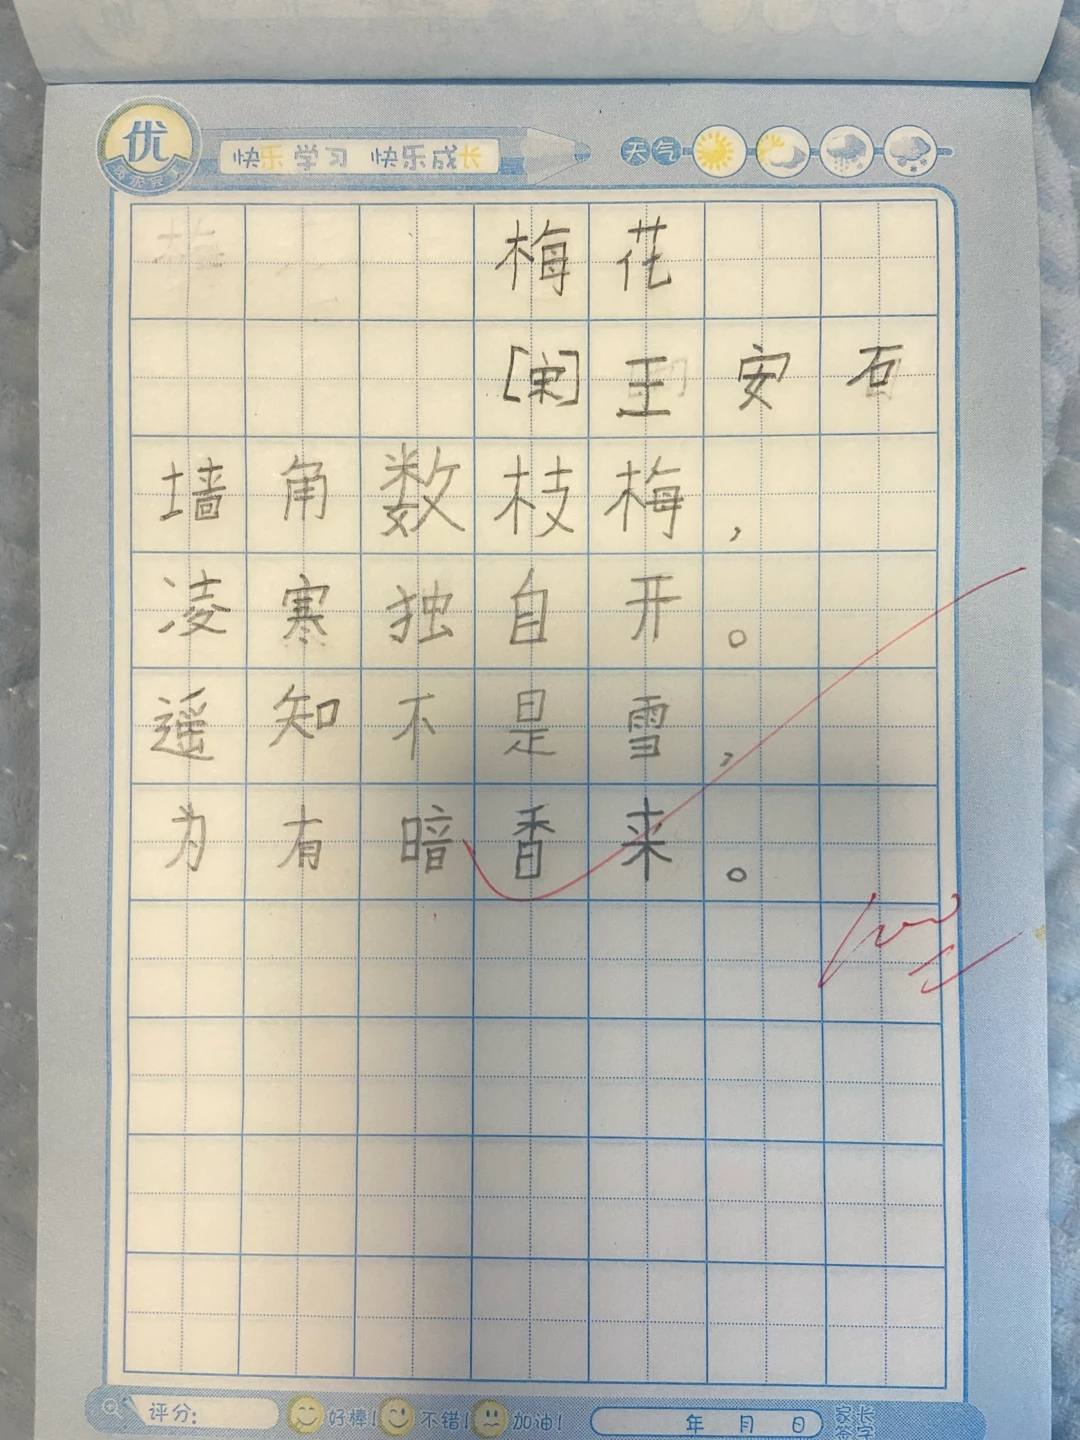 优
快乐学习 快乐成长
天气
梅花
[宋]王安石
墙角数枝梅，
凌寒独自开。
遥知不是雪，
为有暗香来。
100
评分:
好棒! 不错! 加油!
年 月 日
家长签字